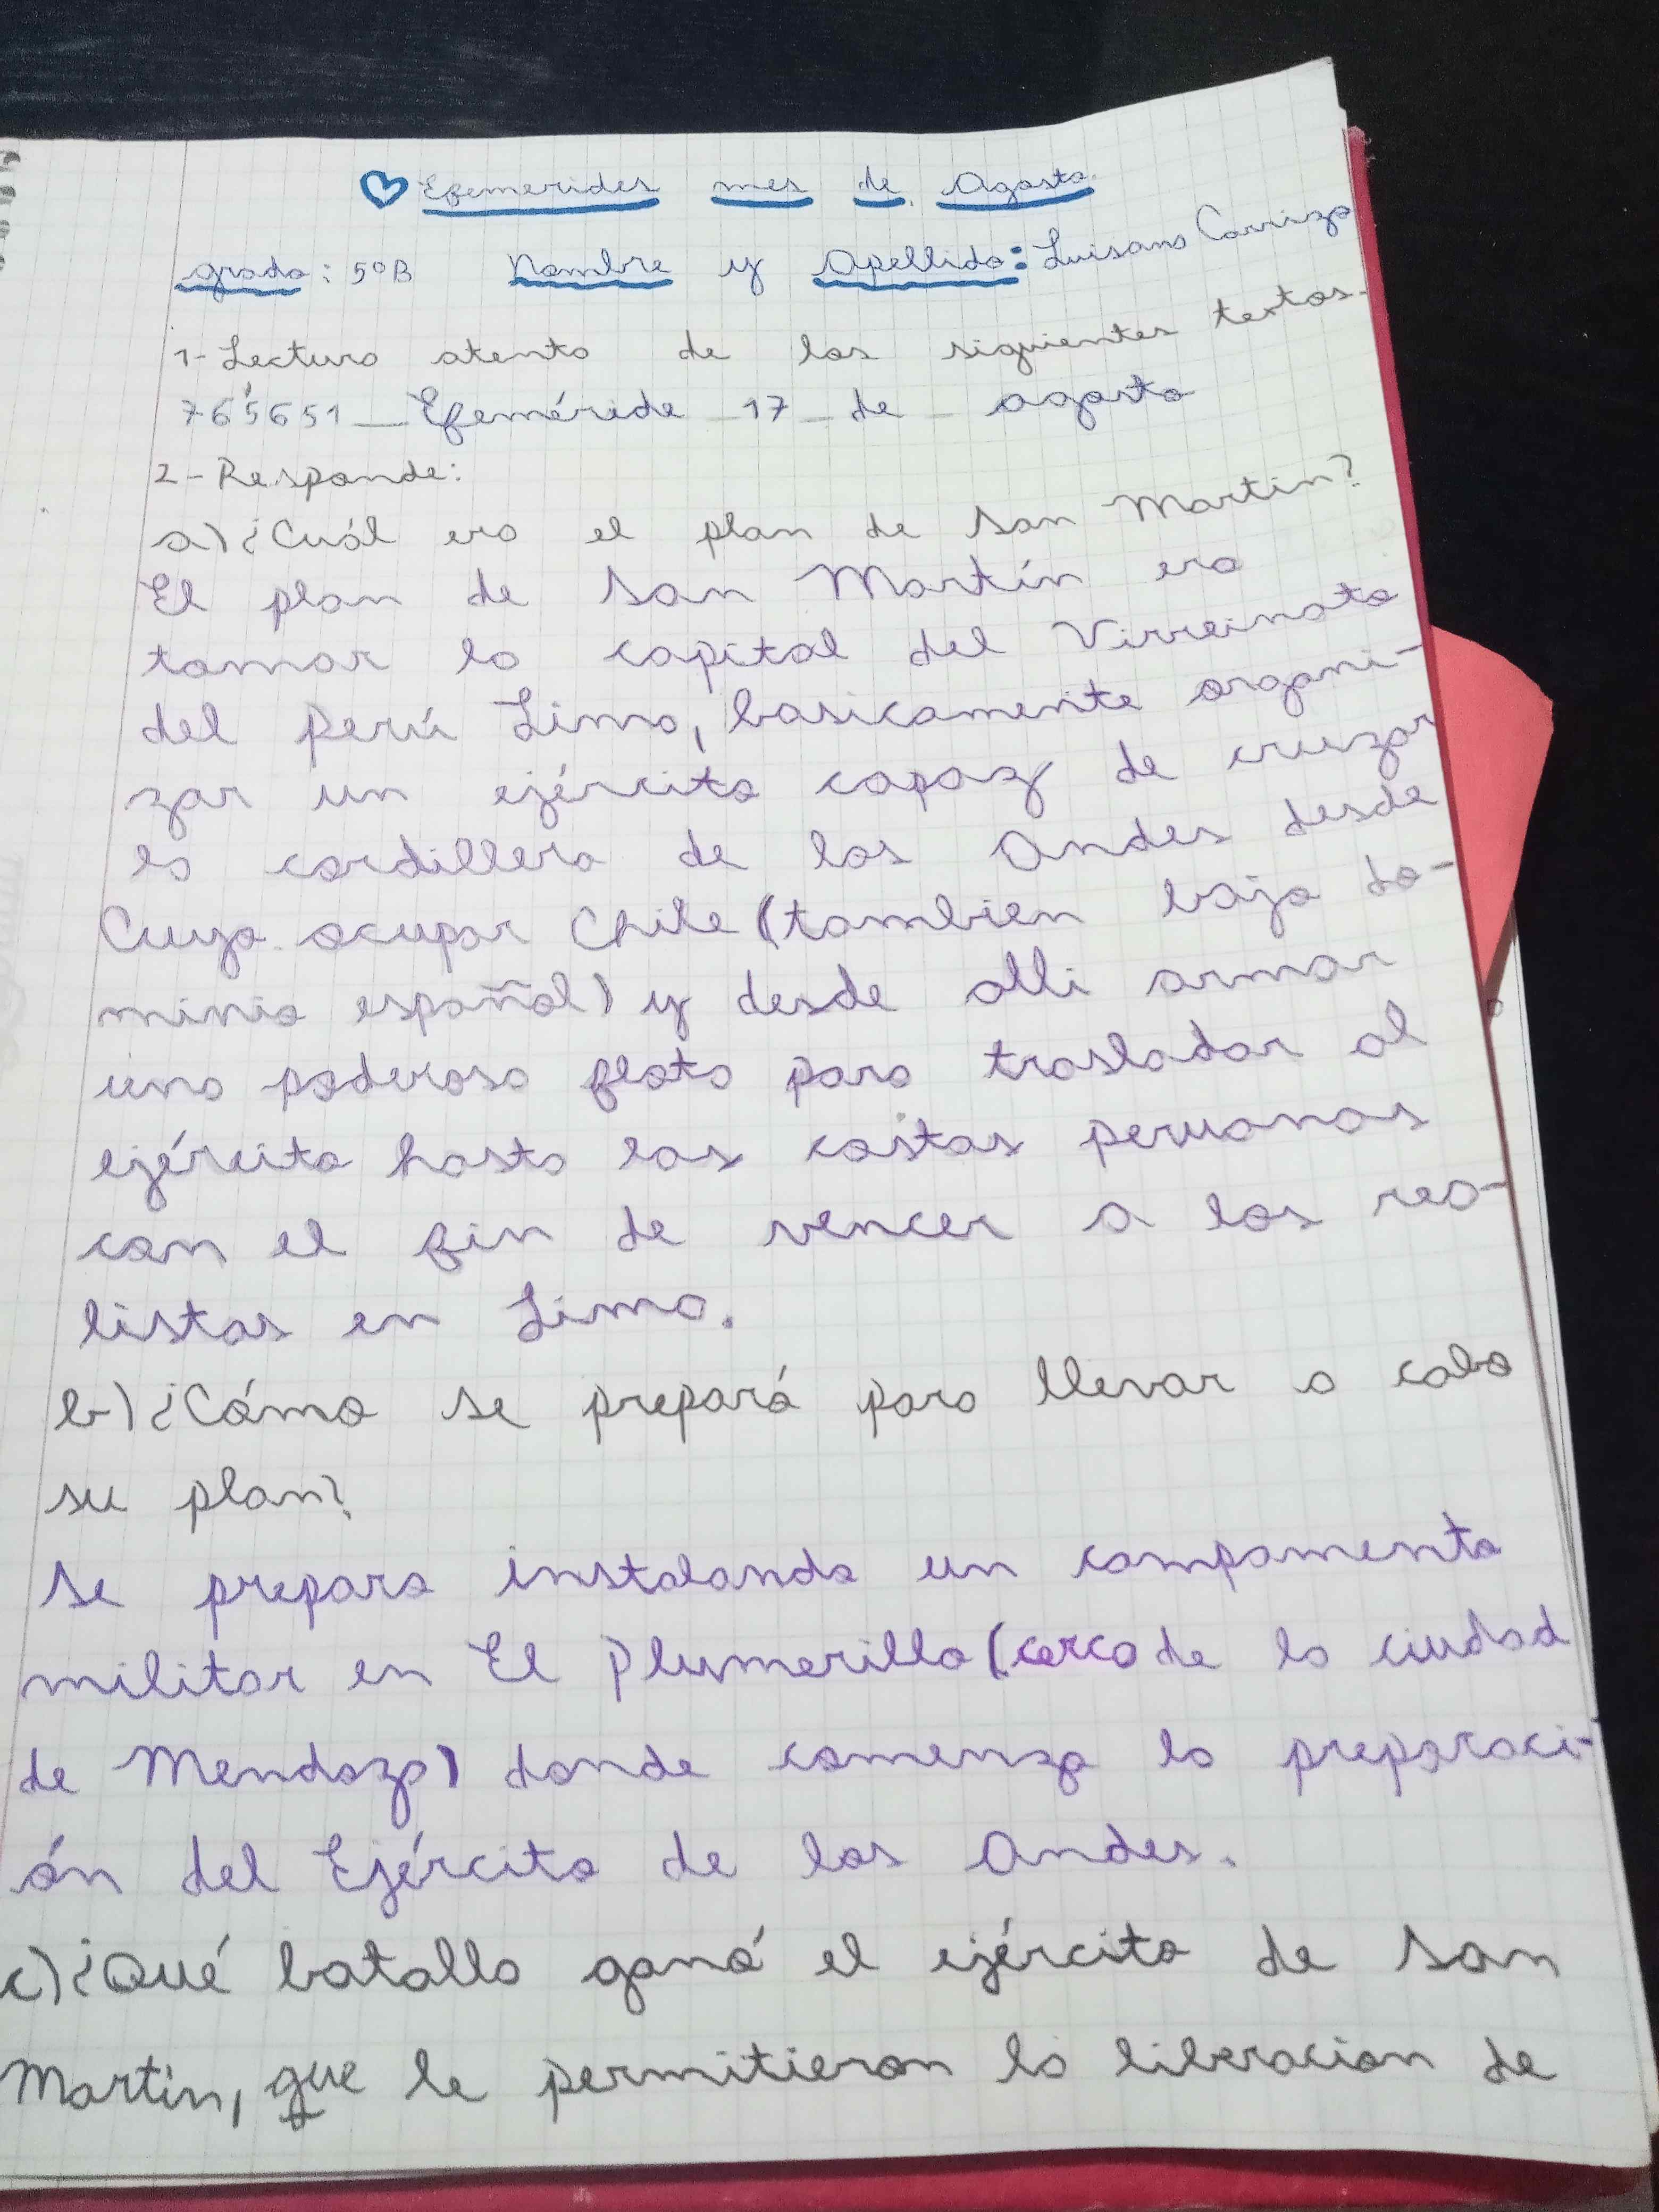 Efemerides mes de Agosto.
grado: 5°B Nombre y Apellido: Luisana Carrizo
1-Lectura atenta de los siguientes textos.
765651_Efeméride_17_de_agosto
2-Responde:
a) ¿Cuál era el plan de San Martin?
El plan de San Martín era
tomar la capital del Virreinato
del Perú Lima, basicamente organi-
zar un ejército capaz de cruzar
la cordillera de los Andes desde
Cuyo ocupar Chile (tambien bajo do-
minio español) y desde alli armar
una poderosa flota para trasladar al
ejército hasta las costas peruanas
con el fin de vencer a los rea-
listas en Lima.
b) ¿Cómo se preparó para llevar a cabo
su plan?
Se preparo instalando un campamento
militar en El Plumerillo (cerca de la ciudad
de Mendoza) donde comenzo la preparaci-
ón del Ejército de los Andes.
c) ¿Qué batalla ganó el ejército de San
Martin, que le permitieron la liberacion de